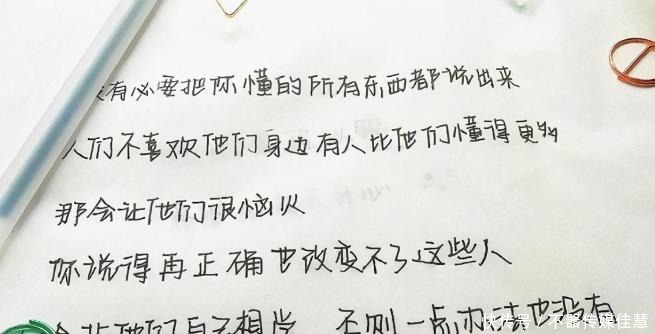 有必要把你懂的所有东西都说出来
人们不喜欢他们身边有人比他们懂得更多
那会让他们很恼火
你说得再正确也改变不了这些人
他们自己想学 否则一点 也没有
快传号/不器传媒佳慧